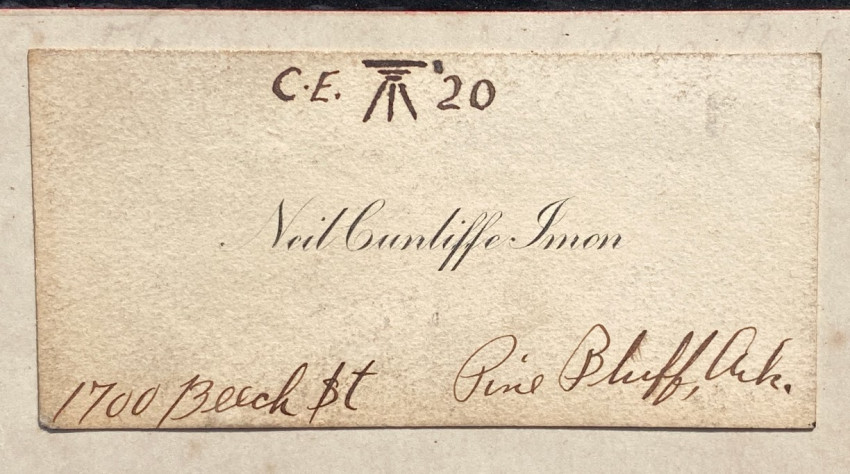 C.E. '20
Neil Cunliffe Imon
1700 Beech St
Pine Bluff, Ark.